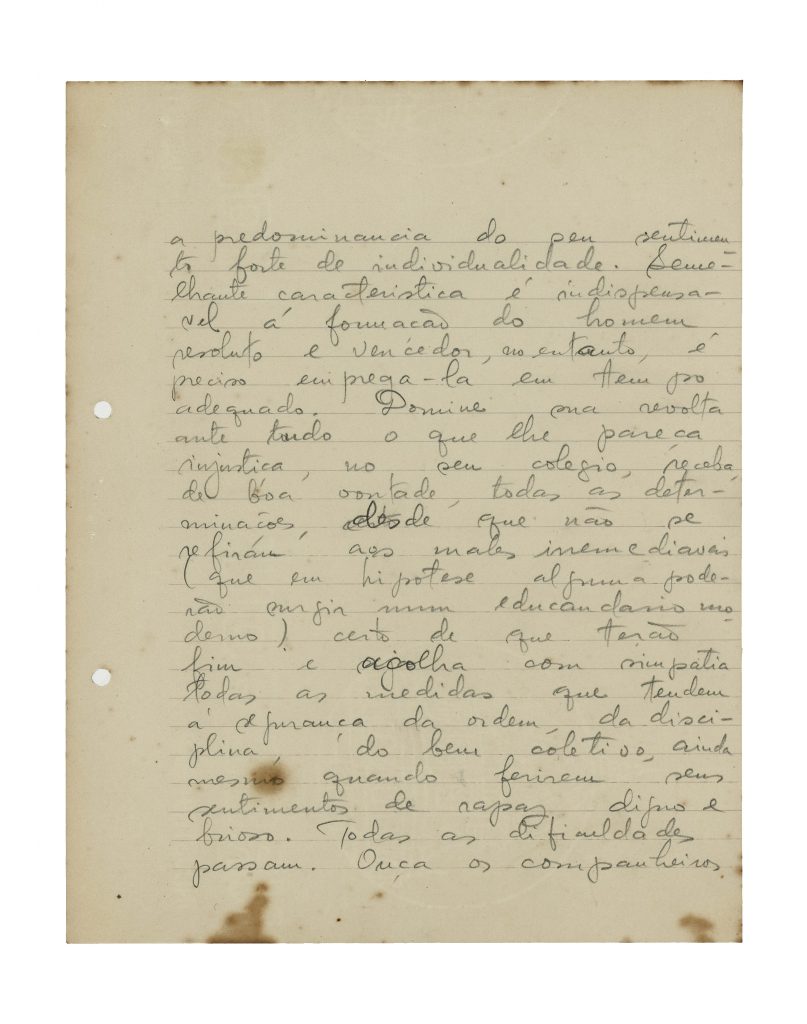 a predominancia do seu sentimen
to forte de individualidade. Seme-
lhante caracteristica é indispensa-
vel á formacão do homem
resoluto e vencedor, no entanto, é
preciso emprega-la em tempo
adequado. Domine sua revolta
ante tudo o que lhe pareca
injustica, no seu colegio, receba,
de bôa vontade, todas as deter-
minacões, desde que não se
refiram, aos males irremediavais
(que em hipotese alguma pode-
rão surgir num educandario mo
derno) certo de que terão
fim e acolha com simpatia
todas as medidas que tendem
á seguranca da ordem, da disci-
plina, do bem coletivo, ainda
mesmo quando ferirem seus
sentimentos de rapaz digno e
brioso. Todas as dificuldades
passam. Ouça os companheiros